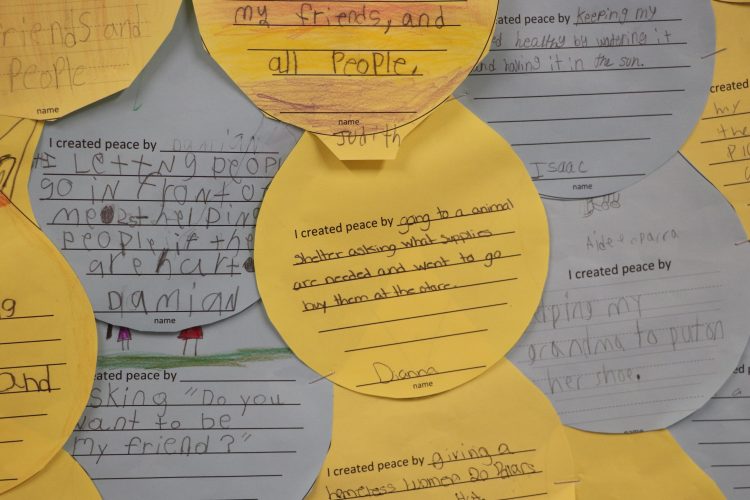 friends and
people
name
my friends, and
all people.
name
Judith
created peace by keeping my
healthy by watering it
and having it in the sun.
Isaac
name
I created peace by Damian
#1 Letting people
go in front of
me 2st helping
people if the
are hart.
Damian
name
I created peace by going to a animal
shelter asking what supplies
are needed and went to go
buy them at the store.
Dianna
name
I created peace by
my
grandma to put on
her shoe.
name
and
created peace by
asking "Do you
want to be
my friend?"
I created peace by giving a
homeless women 20
created
my